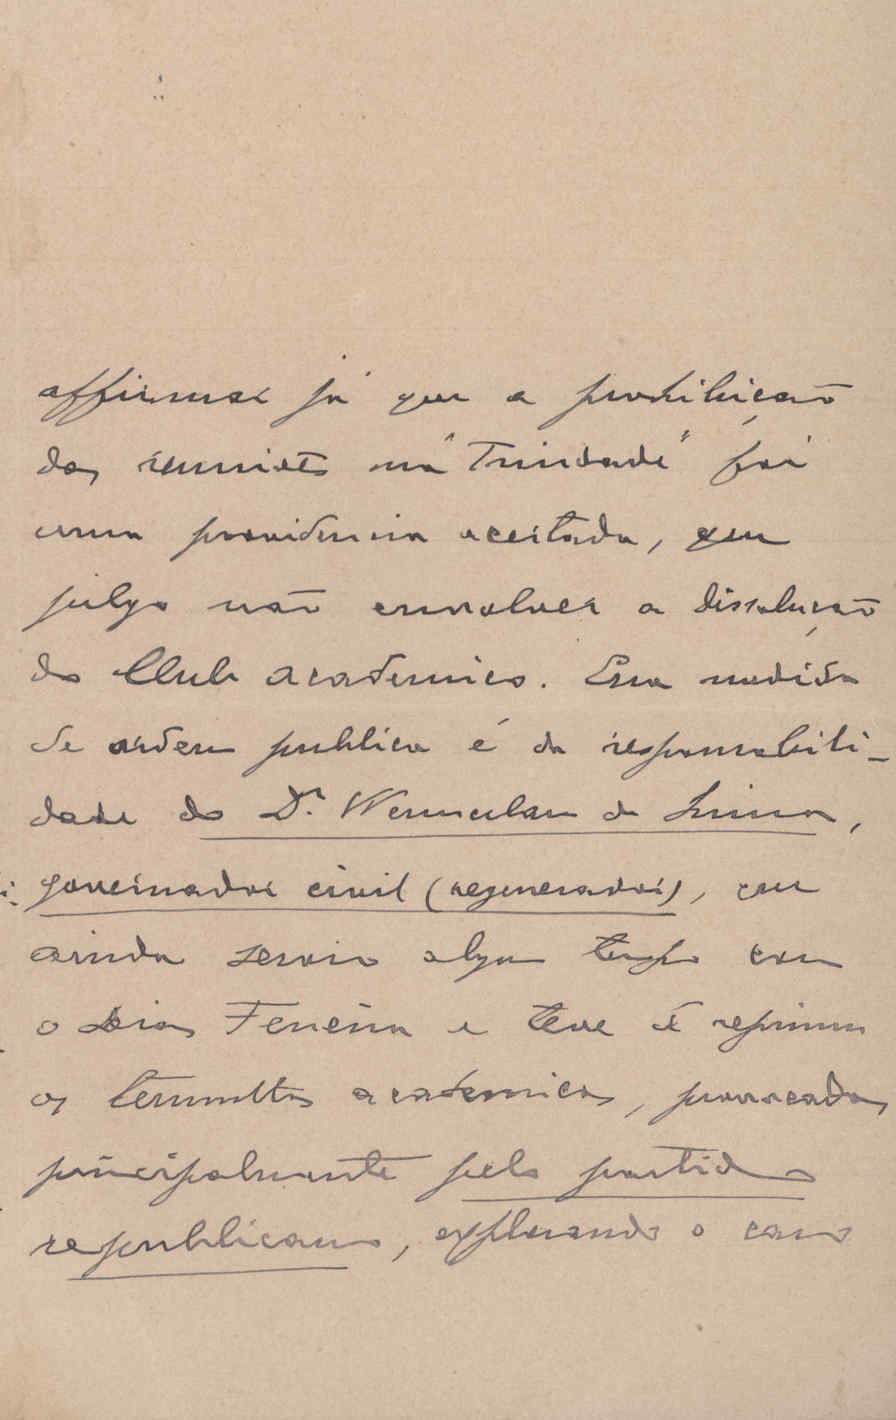 affirmar já que a prohibição
das reuniões na "Trindade" foi
uma providencia acertada, que
julgo não envolver a dissolução
do Club academico. Essa medida
de ordem publica é da responsabili-
dade do Dr. Wenceslau de Lima,
governador civil (regenerador), que
ainda servio algum tempo com
o Dias Ferreira e teve de reprimir
os tumultos academicos, provocados
principalmente pelo partido
republicano, explorando o caso